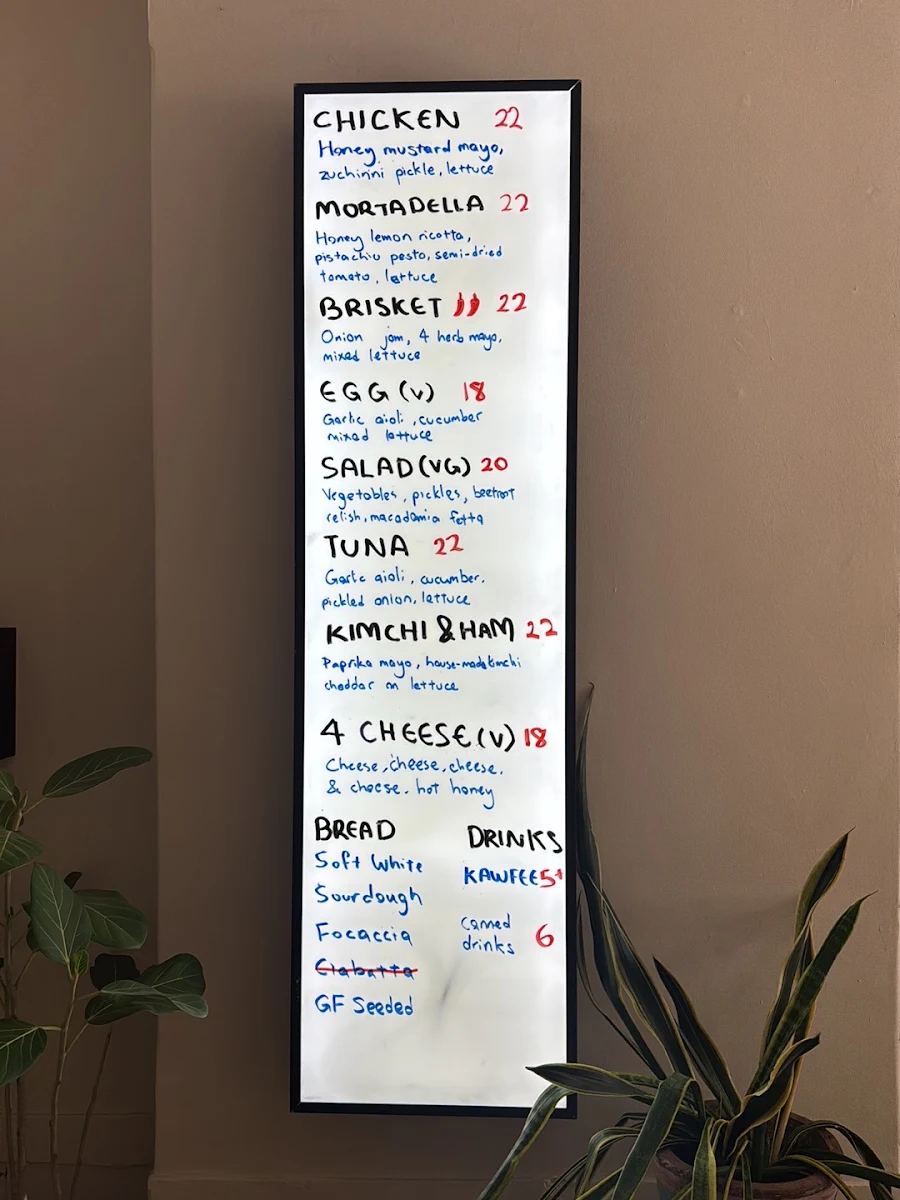 CHICKEN 22
Honey mustard mayo,
zuchinni pickle, lettuce
MORTADELLA 22
Honey lemon ricotta,
pistachio pesto, semi-dried
tomato, lettuce
BRISKET 22
Onion jam, 4 herb mayo,
mixed lettuce
EGG (V) 18
Garlic aioli, cucumber
mixed lettuce
SALAD (VG) 20
Vegetables, pickles, beetroot
relish, macadamia fetta
TUNA 22
Garlic aioli, cucumber.
pickled onion, lettuce
KIMCHI & HAM 22
Paprika mayo, house-made kimchi
cheddar m lettuce
4 CHEESE (V) 18
Cheese, cheese, cheese.
& cheese. hot honey
BREAD
Soft White
Sourdough
Focaccia
Ciabatta
GF Seeded
DRINKS
KAWFEE 5+
Canned
drinks 6